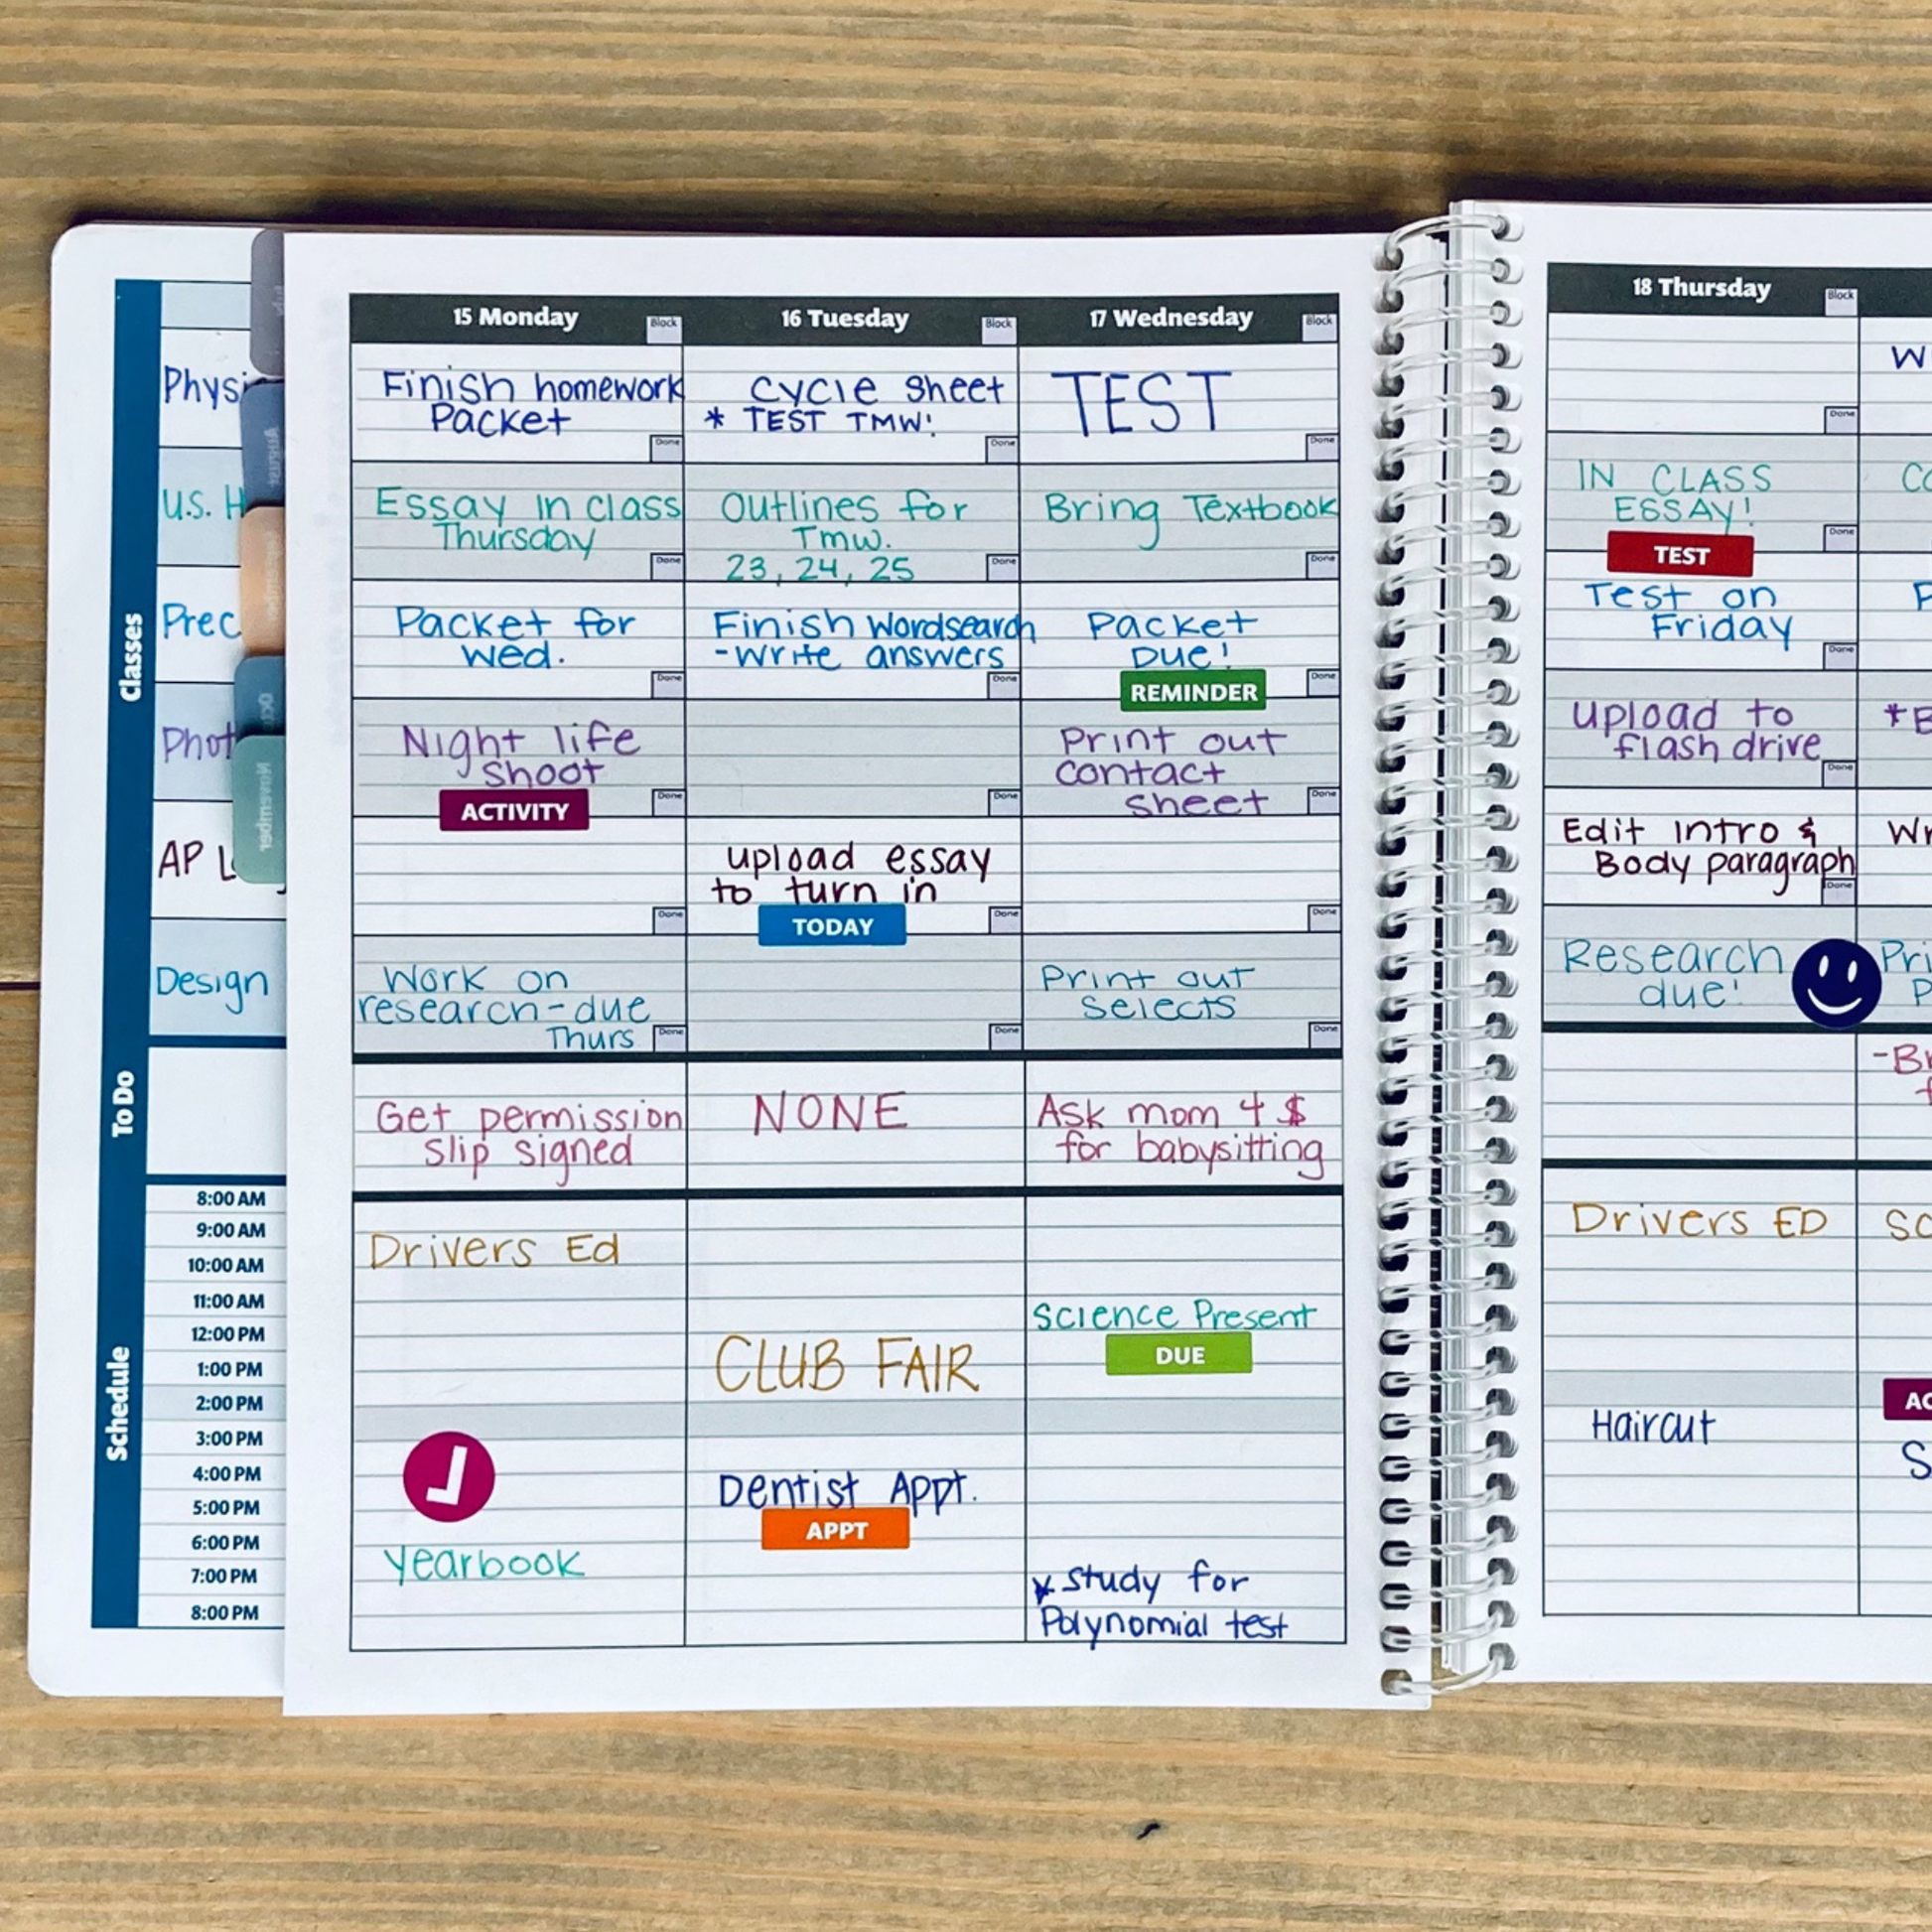 15 Monday
Block
16 Tuesday
Block
17 Wednesday
Block
18 Thursday
Block
Classes
Finish homework
Packet
Done
Cycle Sheet
* TEST TMW!
Done
TEST
Done
Done
U.S.
Essay in class
Thursday
Done
Outlines for
Tmw.
23, 24, 25
Done
Bring Textbook
Done
IN CLASS
ESSAY!
TEST
Done
Packet for
Wed.
Done
Finish Wordsearch
-Write answers
Done
Packet
Due!
REMINDER
Done
Test on
Friday
Done
Night life
Shoot
ACTIVITY
Done
Done
Print out
Contact
Sheet
Done
Upload to
flash drive
Done
AP
Done
upload essay
to turn in
TODAY
Done
Done
Edit Intro &
Body paragraph
Done
Design
Work on
research-due
Thurs
Done
Done
Print out
Selects
Done
Research
due!
To Do
Get permission
Slip signed
NONE
Ask mom 4 $
for babysitting
Schedule
8:00 AM
9:00 AM
10:00 AM
11:00 AM
12:00 PM
1:00 PM
2:00 PM
3:00 PM
4:00 PM
5:00 PM
6:00 PM
7:00 PM
8:00 PM
Drivers Ed
Yearbook
CLUB FAIR
Dentist Appt.
APPT
Science Present
DUE
* Study for
Polynomial test
Drivers ED
Haircut
August
November